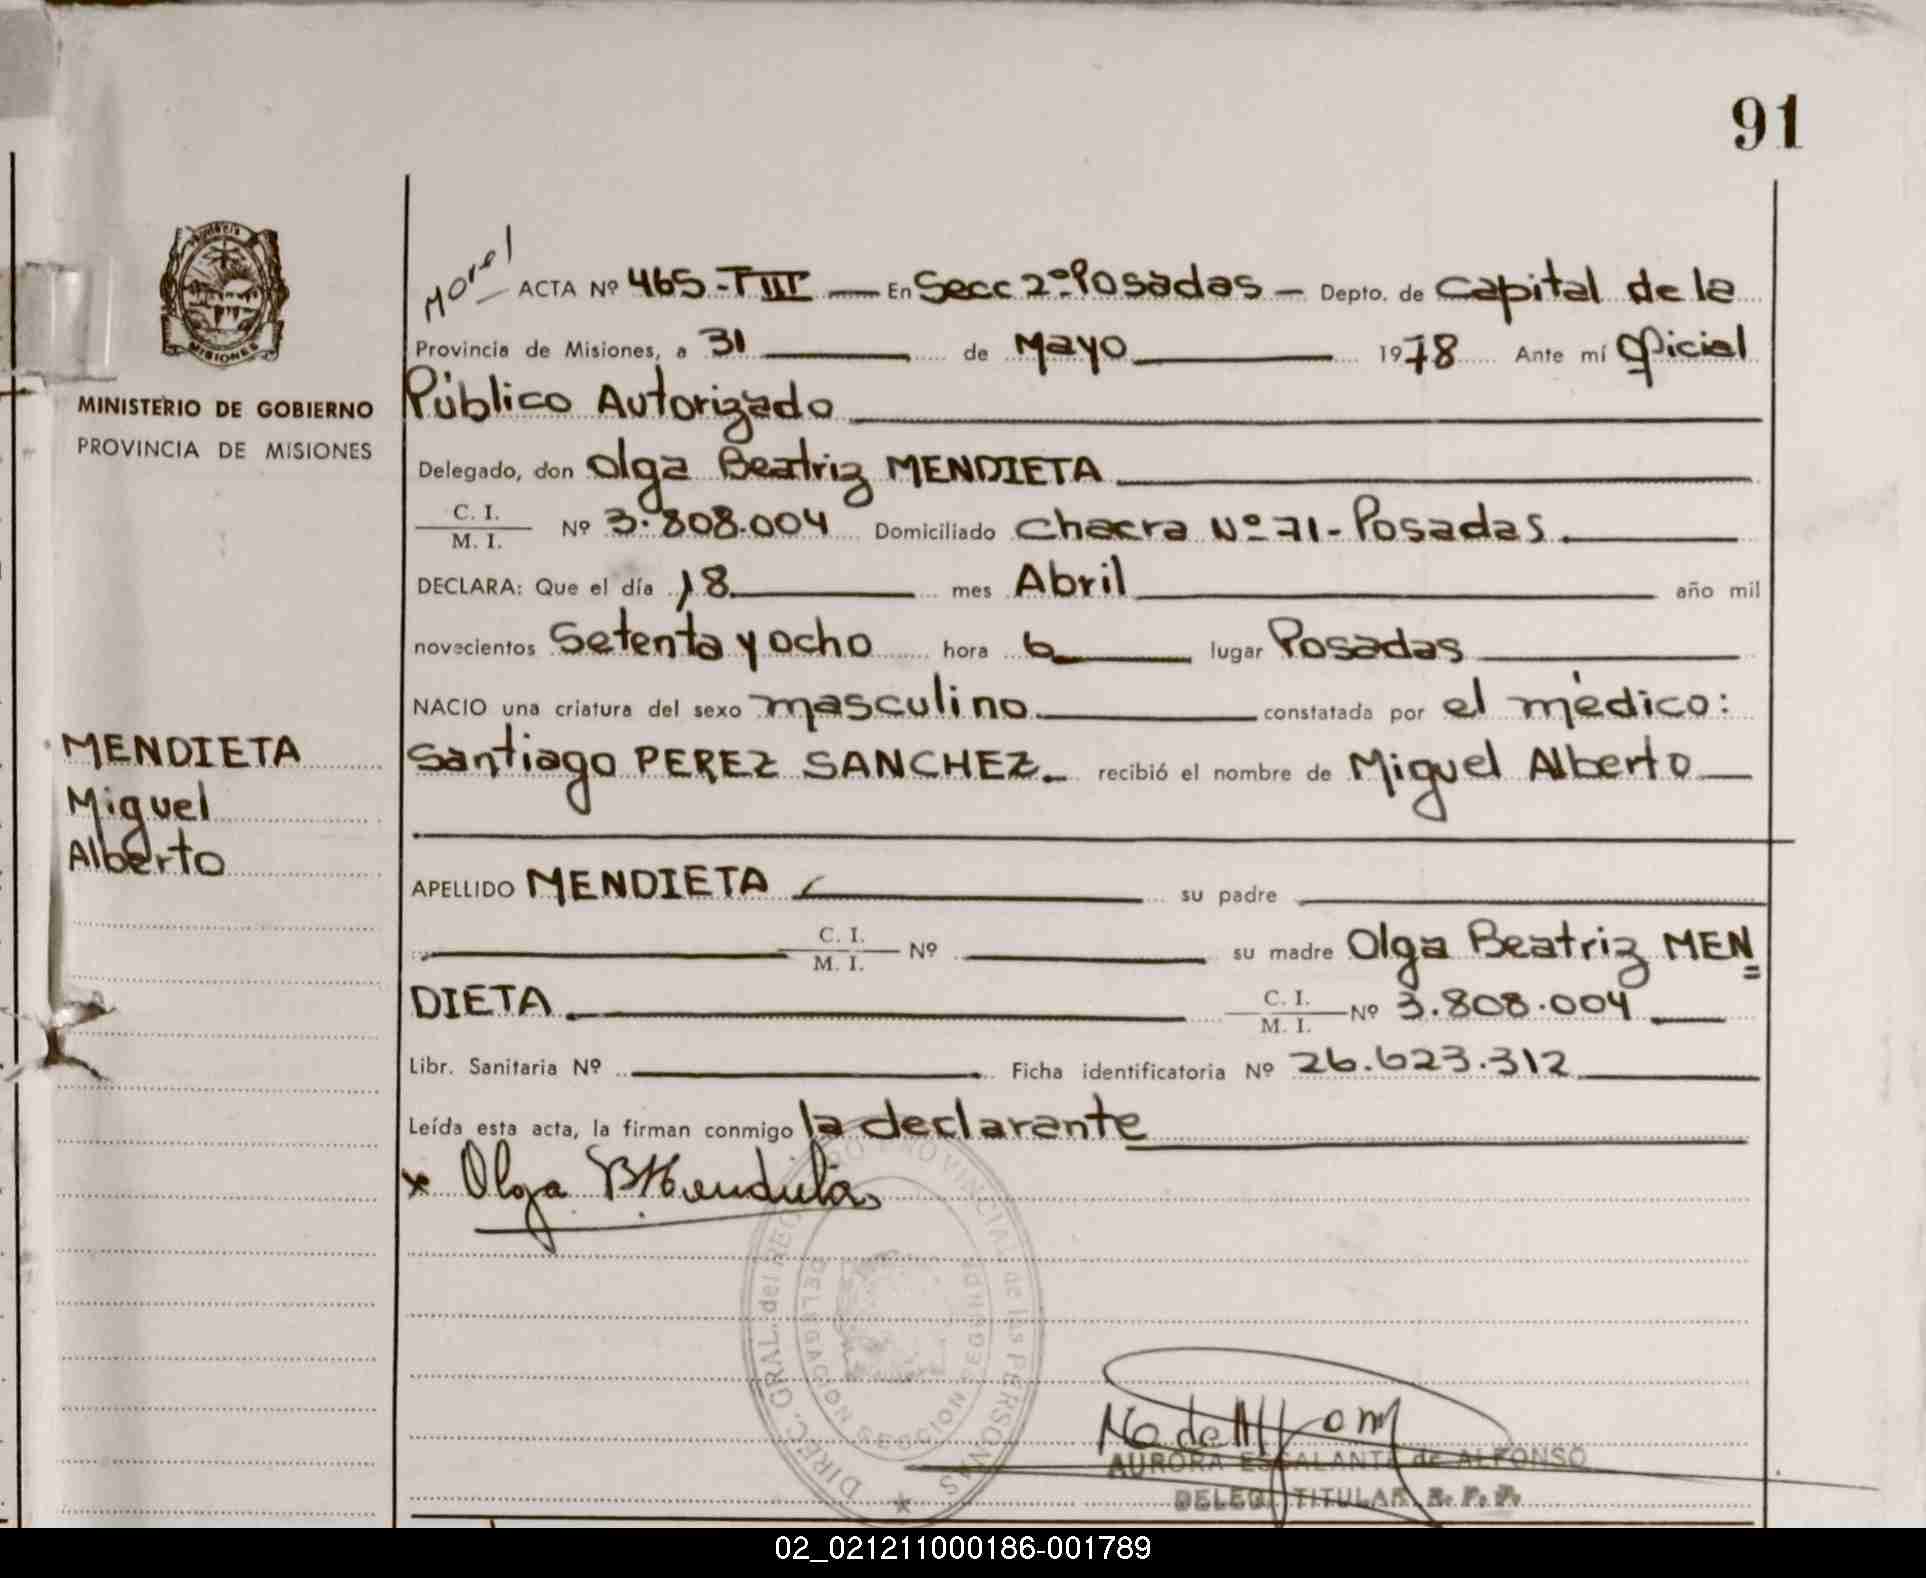 91
Morel ACTA Nº 465-TIII — En Secc 2º Posadas — Depto. de Capital de la
Provincia de Misiones, a 31 de Mayo 1978 Ante mí Oficial
MINISTERIO DE GOBIERNO
PROVINCIA DE MISIONES
MISIONES
Público Autorizado
Delegado, don Olga Beatriz MENDIETA
C. I.
M. I. Nº 3.808.004 Domiciliado Chacra Nº 71 - Posadas
DECLARA: Que el día 18 mes Abril año mil
novecientos Setenta y ocho hora 6 lugar Posadas
NACIO una criatura del sexo masculino constatada por el médico:
Santiago PEREZ SANCHEZ recibió el nombre de Miguel Alberto
MENDIETA
Miguel
Alberto
APELLIDO MENDIETA su padre
C. I.
M. I. Nº su madre Olga Beatriz MEN
DIETA C. I.
M. I. Nº 3.808.004
Libr. Sanitaria Nº Ficha identificatoria Nº 26.623.312
Leída esta acta, la firman conmigo la declarante
x Olga B Mendieta
DIREC. GRAL. del REGISTRO PROVINCIAL de las PERSONAS
DELEGACION SECCION SEGUNDA
AURORA ESCALANTE de ALFONSO
DELEG. TITULAR R. P. P.
02_021211000186-001789